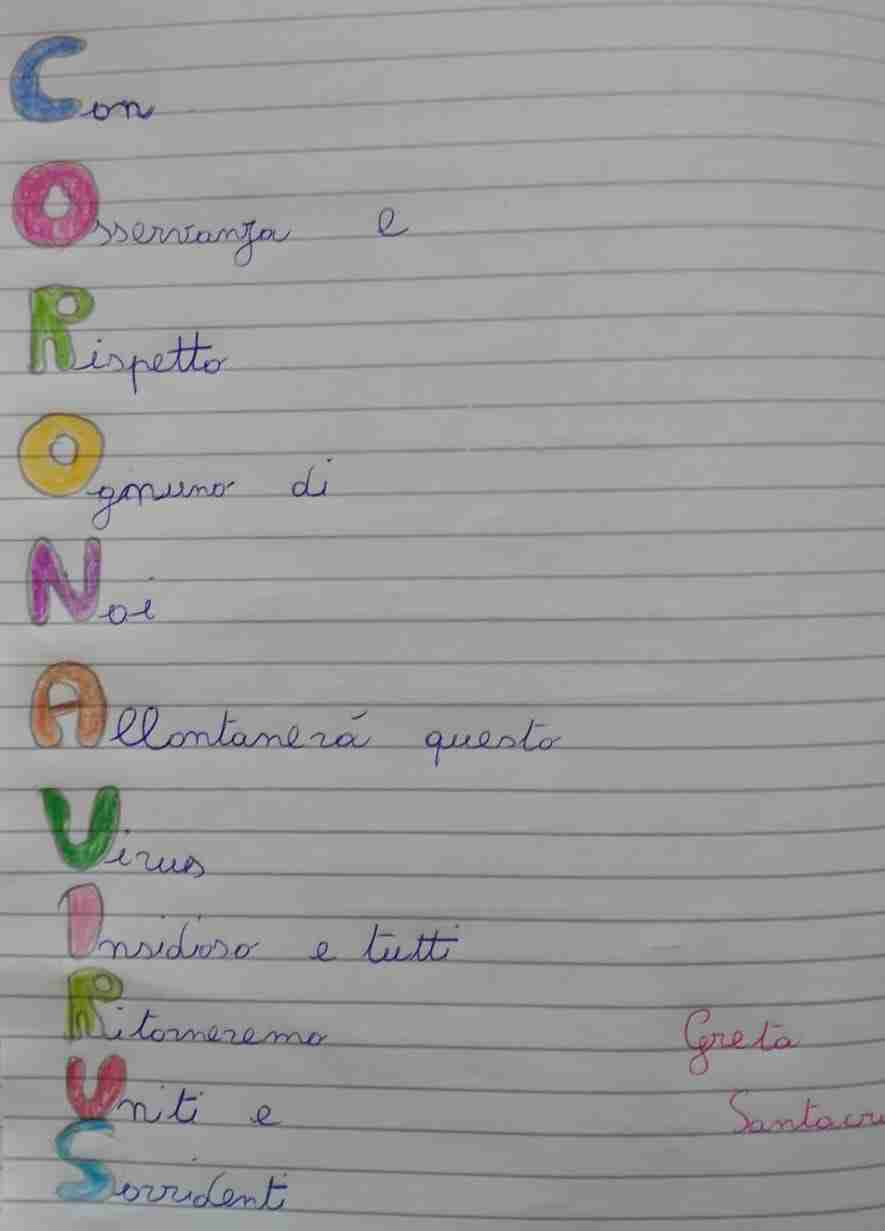 Con
Osservanza e
Rispetto
Ognuno di
Noi
Allontanerá questo
Virus
Insidioso e tutti
Ritorneremo
Greta
Uniti e
Sorridenti